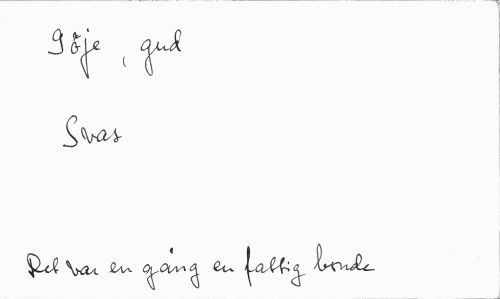 Göje, gud
Svar
Det var en gång en fattig bonde